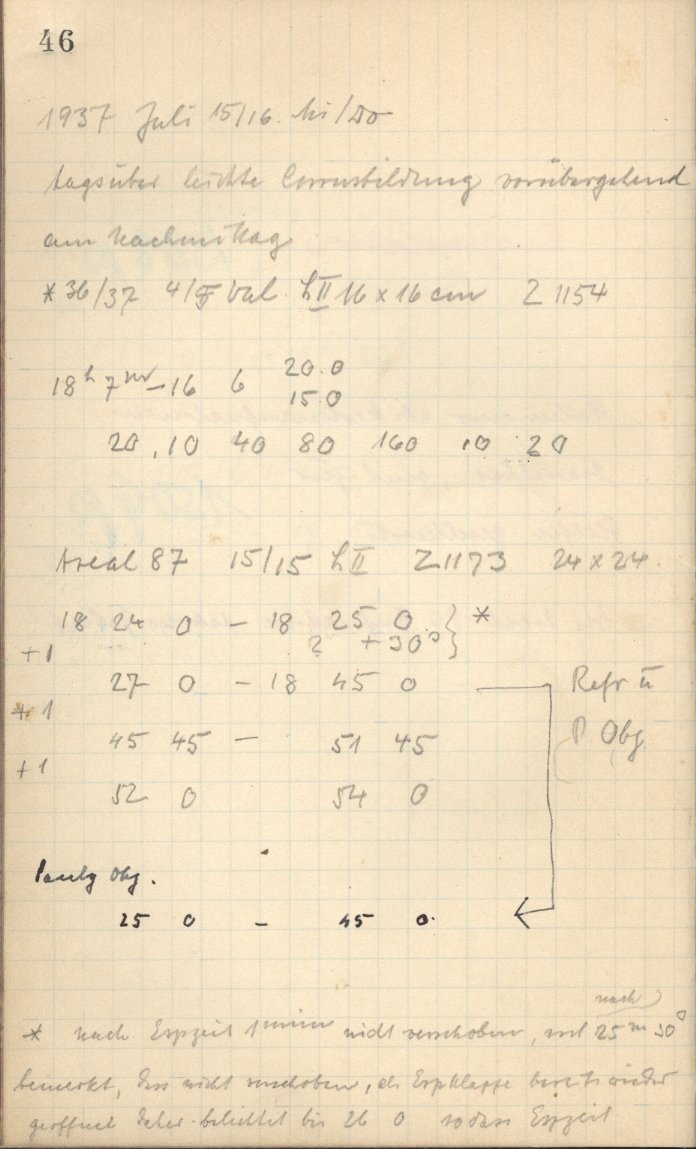 46
1937 Juli 15/16. Mi/Do
tagsüber leichte Cirrusbildung vorübergehend
am Nachmittag
* 36/37 4/5 Val. h II 16 x 16 cm Z 1154
18h 7m – 16 6 20.0
15.0
20 , 10 40 80 160 10 20
Areal 87 15/15 h II Z 1173 24 x 24.
18 24 0 – 18 25 0 } *
+1 2 +30s
27 0 – 18 45 0 Refr u
+1 P Obj.
45 45 – 51 45
+1
52 0 54 0
Pauly Obj.
25 0 – 45 0.
nach
* nach Expzeit 1 min nicht verschoben, erst 25 m 30s
bemerkt, dass nicht verschoben, als Expklappe bereits wieder
geöffnet daher belichtet bis 26 0 sodass Expzeit